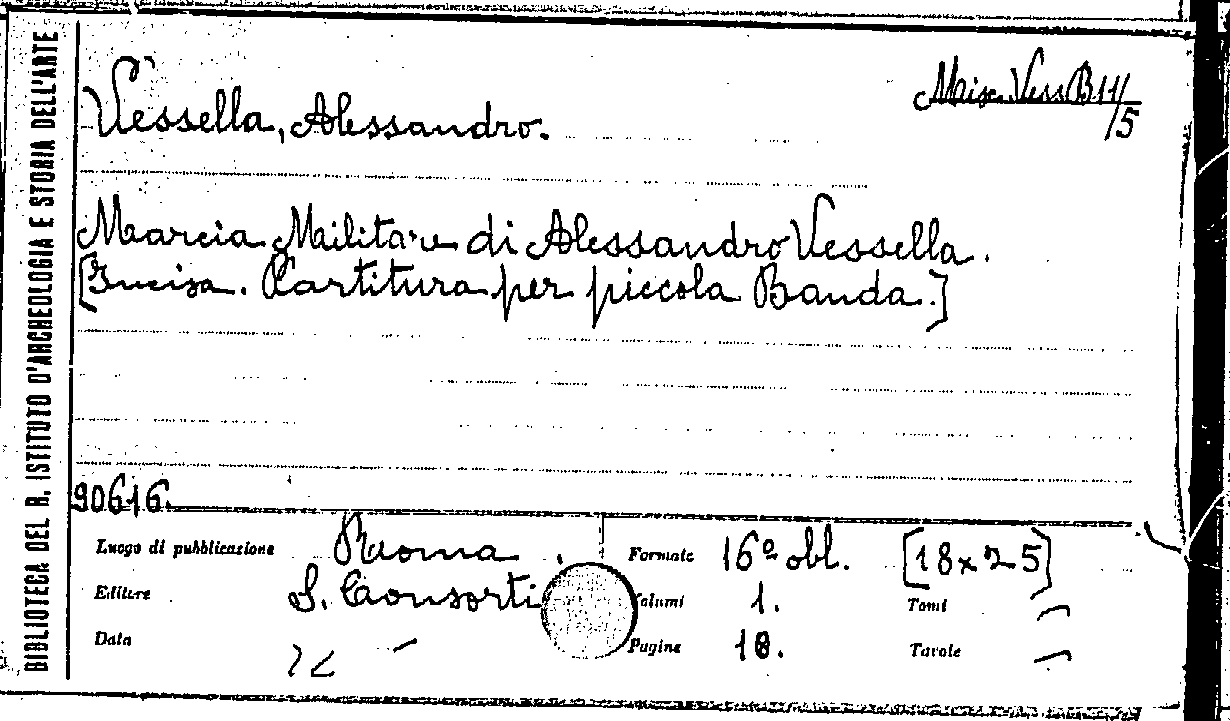 BIBLIOTECA DEL R. ISTITUTO D'ARCHEOLOGIA E STORIA DELL'ARTE
Misc. Vess B 11/5
Vessella, Alessandro.
Marcia Militare di Alessandro Vessella.
[Incisa. Partitura per piccola Banda.]
90616.
Luogo di pubblicazione Roma. Formato 16º obl. [18x25]
Editore S. Consorti Volumi 1. Tomi —
Data — Pagine 10. Tavole —